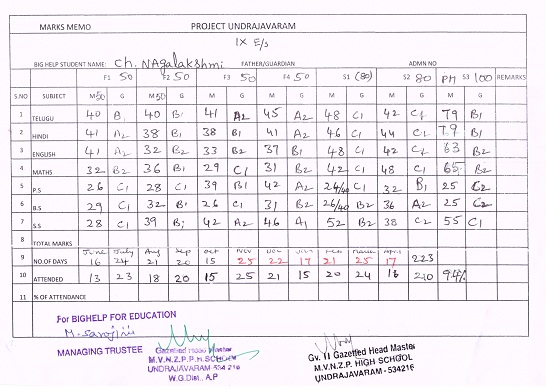 MARKS MEMO PROJECT UNDRAJAVARAM
IX E/s
BIG HELP STUDENT NAME: Ch. NAgalakshmi FATHER/GUARDIAN ADMN NO
F1 50 F2 50 F3 50 F4 50 S1 (80) S2 80 PH S3 100 REMARKS
S.NO SUBJECT M50 G M50 G M G M G M G M G M G
1 TELUGU 40 B1 40 B1 41 A2 45 A2 48 C1 42 C1 79 B1
2 HINDI 41 A2 38 B1 38 B1 41 A2 46 C1 44 C1 79 B1
3 ENGLISH 41 A2 32 B2 33 B2 37 B1 48 C1 42 C1 63 B2
4 MATHS 32 B2 36 B1 29 C1 31 B2 42 C1 48 C1 65 B2
5 P.S 26 C1 28 C1 39 B1 42 A2 24/40 C1 32 B1 25 C2
6 B.S 29 C1 32 B1 26 C1 31 B2 26/40 B2 36 A2 25 C2
7 S.S 28 C1 39 B1 42 A2 46 A1 52 B2 38 C2 55 C1
8 TOTAL MARKS
June July Aug Sep Oct Nov Dec Jan Feb March April
9 NO.OF DAYS 16 24 21 20 15 25 22 17 21 25 17 223
10 ATTENDED 13 23 18 20 15 25 21 15 20 24 16 210 94%
11 % OF ATTENDANCE
For BIGHELP FOR EDUCATION
M. Sarojini
MANAGING TRUSTEE Gazetted Head Master
M.V.N.Z.P.P.H.SCHOOL
UNDRAJAVARAM-534 216
W.G.Dist., A.P
Gv. II Gazetted Head Master
M.V.N.Z.P. HIGH SCHOOL
UNDRAJAVARAM - 534216